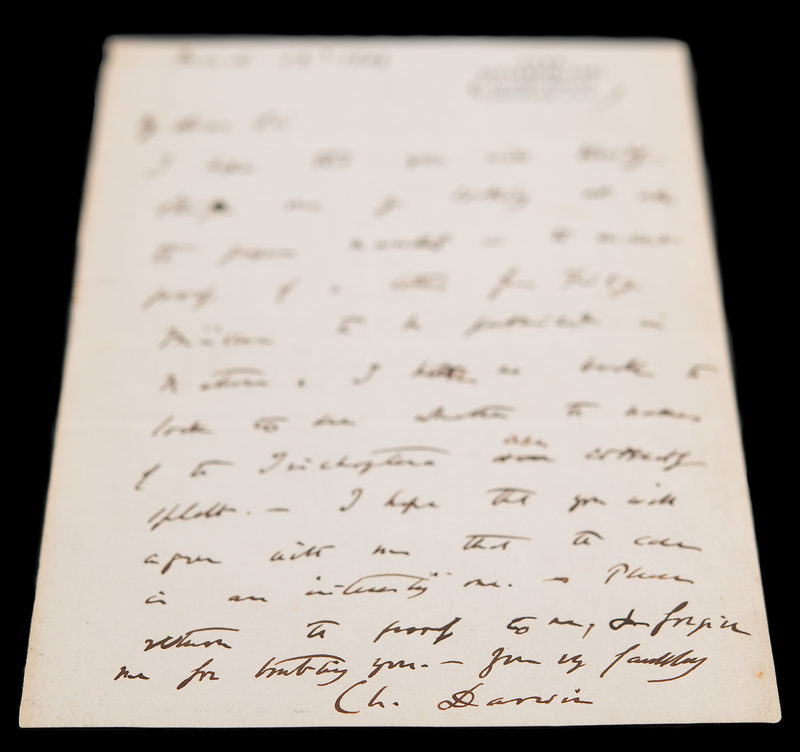 My dear Sir
I hope that you will kindly
oblige me by looking at the
to papers marked in the
proof of a letter from Fritz
Müller to be published in
Nature. I have no book to
look to see whether the names
of the Trichoptera are correctly
spelt. — I hope that you will
agree with me that the case
is an interesting one. — Please
return the proof to me, & forgive
me for troubling you. — Yours very faithfully
Ch. Darwin